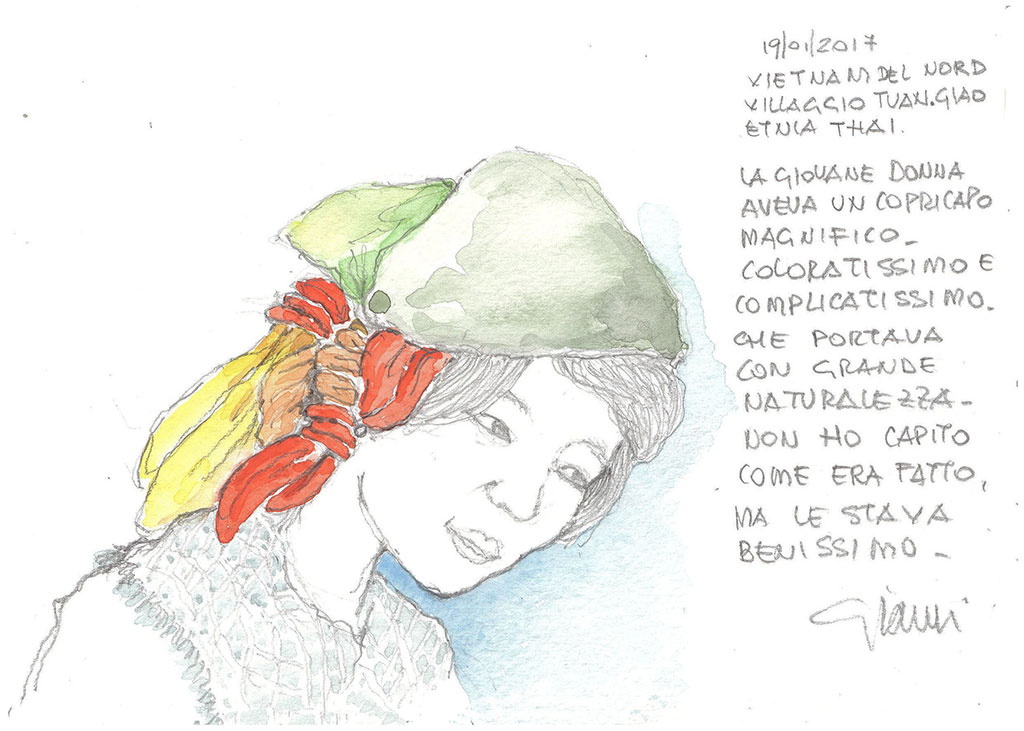 19/01/2017
VIETNAM DEL NORD
VILLAGGIO TUAN.GIAO
ETNIA THAI.
LA GIOVANE DONNA
AVEVA UN COPRICAPO
MAGNIFICO_
COLORATISSIMO E
COMPLICATISSIMO.
CHE PORTAVA
CON GRANDE
NATURALEZZA_
NON HO CAPITO
COME ERA FATTO,
MA LE STAVA
BENISSIMO_
Gianni